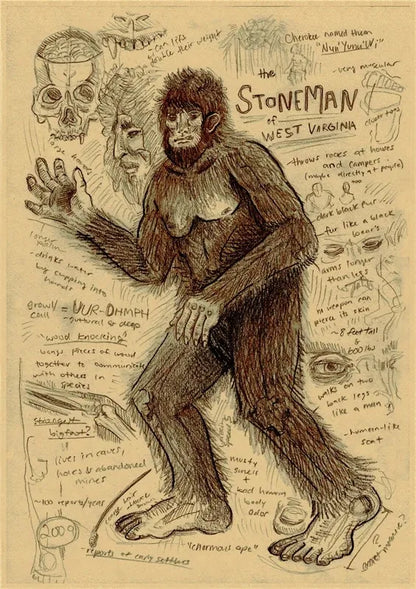 can lift
double their weight
Cherokee named them
"Nun'Yunu'Wi"
the
STONEMAN
of
WEST VIRGINIA
very muscular
throws rocks at houses
and campers
(maybe directly at people)
large hands
dark black fur
fur like a black
bear's
arms longer
than legs
no weapon can
pierce its skin
~ 8 feet tall
&
600 lbs
drinks water
by cupping into
hands
growl = UUR-DHMPH
call
- guttural & deep
"wood knocking"
bangs pieces of wood
together to communicate
with others in
species
walks on two
back legs
like a man
humanlike
scat
strongest
bigfoot?
lives in caves,
holes & abandoned
mines
~100 reports/year
musty
smell
+
bad human
body
odor
2009
reports of early settlers
"enormous ape"